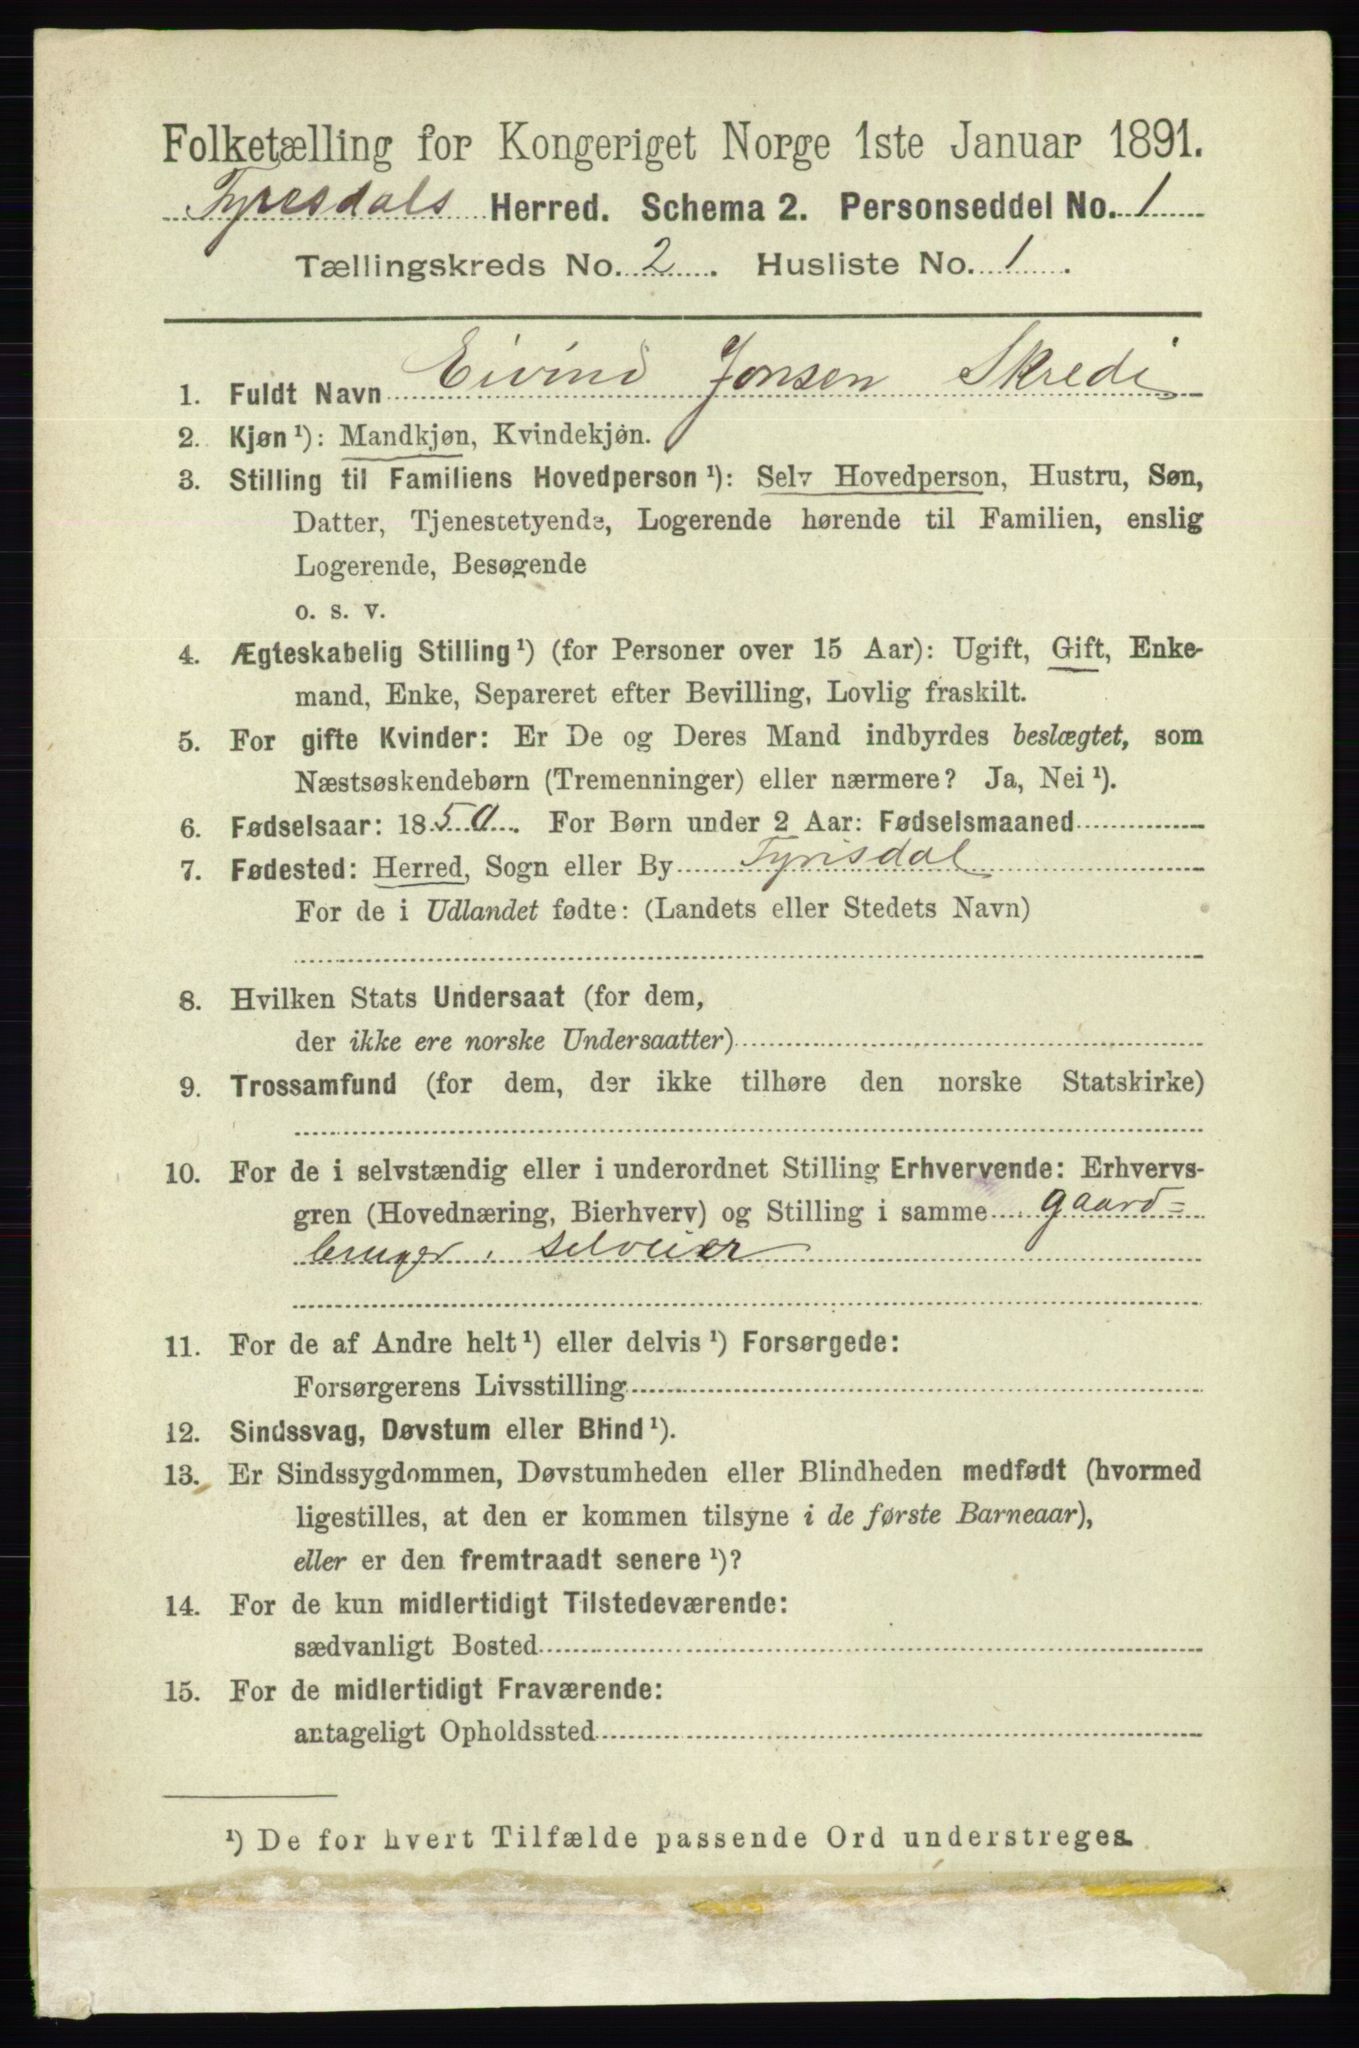 Folketælling for Kongeriget Norge 1ste Januar 1891.
Tyresdals Herred. Schema 2. Personseddel No. 1
Tællingskreds No. 2. Husliste No. 1.
1. Fuldt Navn Eivind Jonsen Skredi
2. Kjøn ¹): Mandkjøn, Kvindekjøn.
3. Stilling til Familiens Hovedperson ¹): Selv Hovedperson, Hustru, Søn,
Datter, Tjenestetyende, Logerende hørende til Familien, enslig
Logerende, Besøgende
o. s. v.
4. Ægteskabelig Stilling ¹) (for Personer over 15 Aar): Ugift, Gift, Enke-
mand, Enke, Separeret efter Bevilling, Lovlig fraskilt.
5. For gifte Kvinder: Er De og Deres Mand indbyrdes beslægtet, som
Næstsøskendebørn (Tremenninger) eller nærmere? Ja, Nei ¹).
6. Fødselsaar: 1850. For Børn under 2 Aar: Fødselsmaaned
7. Fødested: Herred, Sogn eller By Tyrisdal
For de i Udlandet fødte: (Landets eller Stedets Navn)
8. Hvilken Stats Undersaat (for dem,
der ikke ere norske Undersaatter)
9. Trossamfund (for dem, der ikke tilhøre den norske Statskirke)
10. For de i selvstændig eller i underordnet Stilling Erhvervende: Erhvervs-
gren (Hovednæring, Bierhverv) og Stilling i samme gaard=
bruger, selveier
11. For de af Andre helt ¹) eller delvis ¹) Forsørgede:
Forsørgerens Livsstilling
12. Sindssvag, Døvstum eller Blind ¹).
13. Er Sindssygdommen, Døvstumheden eller Blindheden medfødt (hvormed
ligestilles, at den er kommen tilsyne i de første Barneaar),
eller er den fremtraadt senere ¹)?
14. For de kun midlertidigt Tilstedeværende:
sædvanligt Bosted
15. For de midlertidigt Fraværende:
antageligt Opholdssted
¹) De for hvert Tilfælde passende Ord understreges.